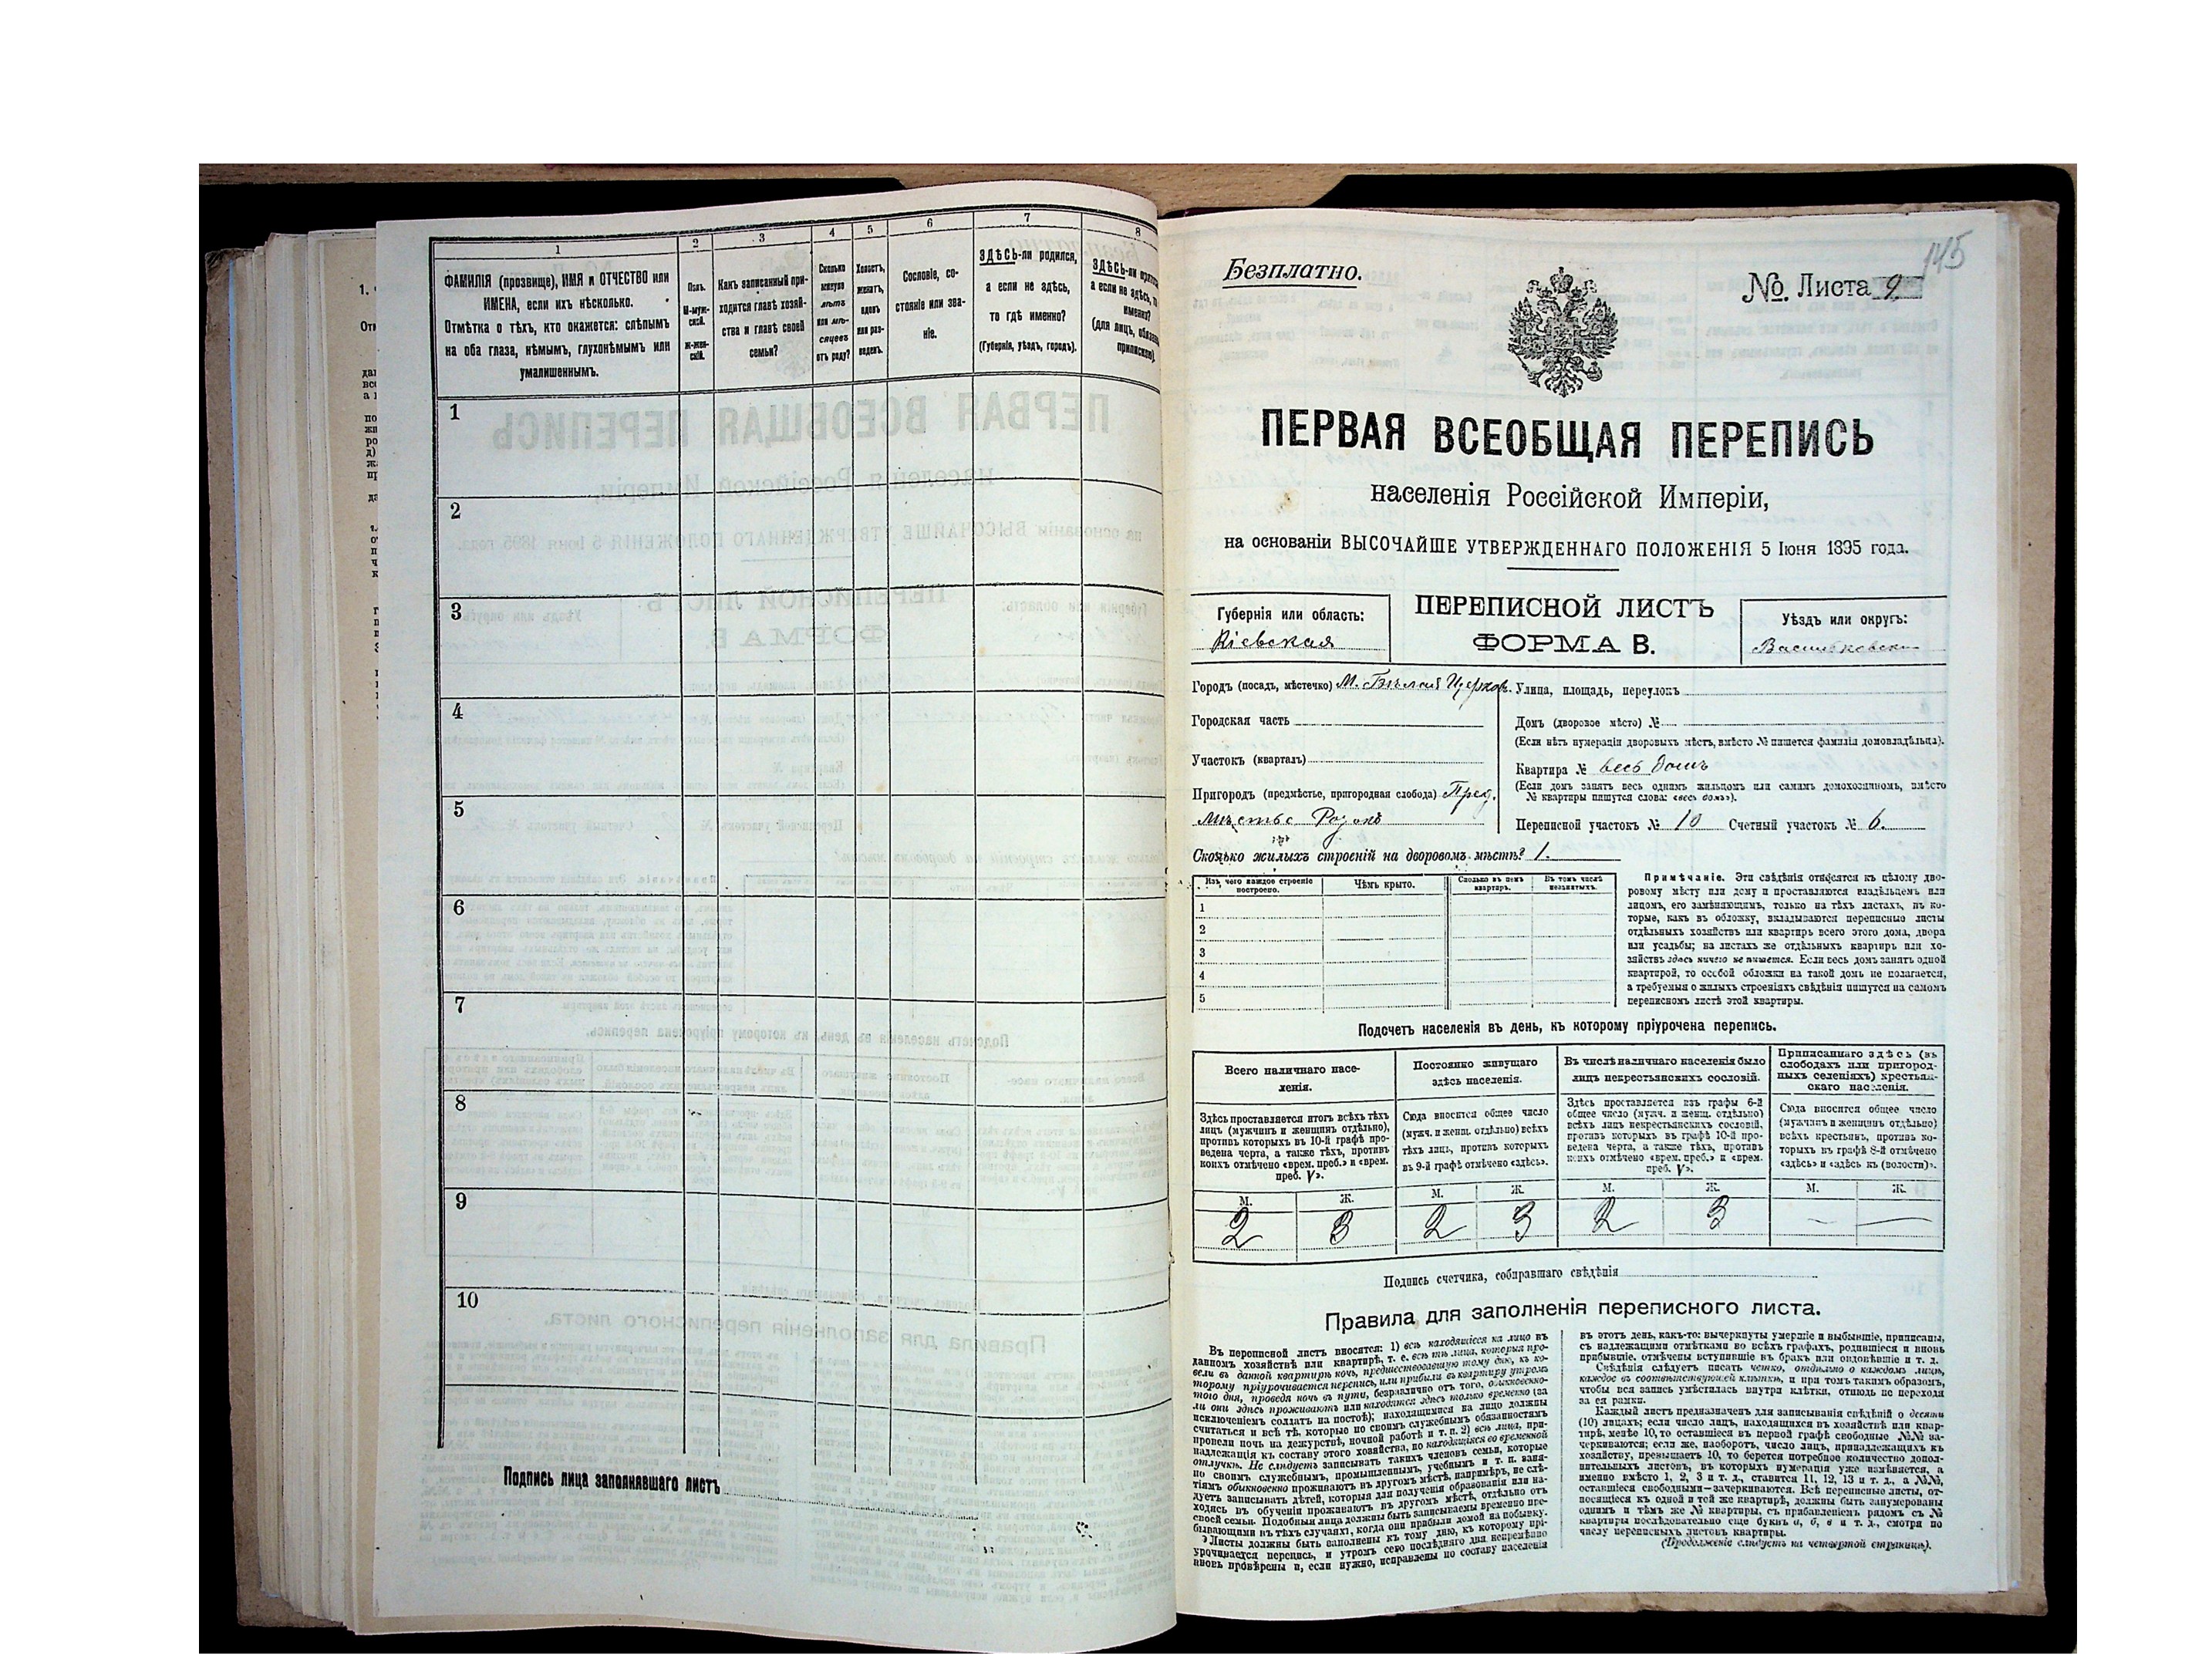 1
2
3
4
5
6
7
8
ФАМИЛІЯ (прозвище), ИМЯ и ОТЧЕСТВО или
ИМЕНА, если ихъ нѣсколько.
Отмѣтка о тѣхъ, кто окажется: слѣпымъ
на оба глаза, нѣмымъ, глухонѣмымъ или
умалишеннымъ.
Полъ.
М-муж-
ской.
ж-жен-
скій.
Какъ записанный при-
ходится главѣ хозяй-
ства и главѣ своей
семьи?
Сколько
минуло
лѣтъ
или мѣ-
сяцевъ
отъ роду?
Холостъ,
женатъ,
вдовъ
или раз-
веденъ.
Сословіе, со-
стояніе или зва-
ніе.
ЗДѢСЬ-ли родился,
а если не здѣсь,
то гдѣ именно?
(Губернія, уѣздъ, городъ).
ЗДѢСЬ-ли
а если не здѣсь,
именно?
(для лицъ,
1
2
3
4
5
6
7
8
9
10
Подпись лица заполнявшаго листъ
145
Безплатно.
№. Листа 9.
ПЕРВАЯ ВСЕОБЩАЯ ПЕРЕПИСЬ
населенія Россійской Имперіи,
на основаніи ВЫСОЧАЙШЕ УТВЕРЖДЕННАГО ПОЛОЖЕНІЯ 5 Іюня 1895 года.
Губернія или область:
Кіевская
ПЕРЕПИСНОЙ ЛИСТЪ
ФОРМА В.
Уѣздъ или округъ:
Васильковскі
Городъ (посадъ, мѣстечко) М. Бѣлая Церковь.
Городская часть
Участокъ (кварталъ)
Пригородъ (предмѣстье, пригородная слобода) Пред.
мѣстье
Улица, площадь, переулокъ
Домъ (дворовое мѣсто) №
(Если нѣтъ нумераціи дворовыхъ мѣстъ, вмѣсто № пишется фамилія домовладѣльца).
Квартира № весь домъ
(Если домъ занятъ весь однимъ жильцомъ или самимъ домохозяиномъ, вмѣсто
№ квартиры пишутся слова: «весь домъ»).
Переписной участокъ № 10 Счетный участокъ № 6.
Сколько жилыхъ строеній на дворовомъ мѣстѣ? 1.
Изъ чего каждое строеніе
построено.
Чѣмъ крыто.
Сколько въ немъ
квартиръ.
Въ томъ числѣ
нежилыхъ.
1
2
3
4
5
Примѣчаніе. Эти свѣдѣнія относятся къ цѣлому дво-
ровому мѣсту или дому и проставляются владѣльцемъ или
лицомъ, его замѣняющимъ, только на тѣхъ листахъ, въ ко-
торые, какъ въ обложку, вкладываются переписные листы
отдѣльныхъ хозяйствъ или квартиръ всего этого дома, двора
или усадьбы; на листахъ же отдѣльныхъ квартиръ или хо-
зяйствъ здѣсь ничего не пишется. Если весь домъ занятъ одной
квартирой, то особой обложки на такой домъ не полагается,
а требуемыя о жилыхъ строеніяхъ свѣдѣнія пишутся на самомъ
переписномъ листѣ этой квартиры.
Подсчетъ населенія въ день, къ которому пріурочена перепись.
Всего наличнаго насе-
ленія.
Постоянно живущаго
здѣсь населенія.
Въ числѣ наличнаго населенія было
лицъ некрестьянскихъ сословій.
Приписаннаго здѣсь (въ
слободахъ или пригород-
ныхъ селеніяхъ) крестьян-
скаго населенія.
Здѣсь проставляется итогъ всѣхъ тѣхъ
лицъ (мужчинъ и женщинъ отдѣльно),
противъ которыхъ въ 10-й графѣ про-
ведена черта, а также тѣхъ, противъ
коихъ отмѣчено «врем. преб.» и «врем.
преб. V».
Сюда вносится общее число
(мужч. и женщ. отдѣльно) всѣхъ
тѣхъ лицъ, противъ которыхъ
въ 9-й графѣ отмѣчено «здѣсь».
Здѣсь проставляется изъ графы 6-й
общее число (мужч. и женщ. отдѣльно)
всѣхъ лицъ некрестьянскихъ сословій,
противъ которыхъ въ графѣ 10-й про-
ведена черта, а также тѣхъ, противъ
коихъ отмѣчено «врем. преб.» и «врем.
преб. V».
Сюда вносится общее число
(мужчинъ и женщинъ отдѣльно)
всѣхъ крестьянъ, противъ ко-
торыхъ въ графѣ 8-й отмѣчено
«здѣсь» и «здѣсь къ (волости)».
М. Ж. М. Ж. М. Ж. М. Ж.
2 3 2 3 2 3 — —
Подпись счетчика, собиравшаго свѣдѣнія
Правила для заполненія переписного листа.
Въ переписной листъ вносятся: 1) всѣ находящіеся на лицо въ
данномъ хозяйствѣ или квартирѣ, т. е. всѣ тѣ лица, которыя про-
вели въ данной квартирѣ ночь, предшествовавшую тому дню, къ ко-
торому пріурочивается перепись, или прибыли въ квартиру утромъ
того дня, проведя ночь въ пути, безразлично отъ того, обыкновенно-
ли они здѣсь проживаютъ или находятся здѣсь только временно (за
исключеніемъ солдатъ на постоѣ); находящимися на лицо должны
считаться и всѣ тѣ, которые по своимъ служебнымъ обязанностямъ
провели ночь на дежурствѣ, ночной работѣ и т. п. 2) всѣ лица, при-
надлежащія къ составу этого хозяйства, но находящіяся во временной
отлучкѣ. Не слѣдуетъ записывать такихъ членовъ семьи, которые
по своимъ служебнымъ, промышленнымъ, учебнымъ и т. п. заня-
тіямъ обыкновенно проживаютъ въ другомъ мѣстѣ, напримѣръ, не слѣ-
дуетъ записывать дѣтей, которыя для полученія образованія или на-
ходясь въ обученіи проживаютъ въ другомъ мѣстѣ, отдѣльно отъ
своей семьи. Подобныя лица должны быть записываемы временно пре-
бывающими въ тѣхъ случаяхъ, когда они прибыли домой на побывку.
Листы должны быть заполнены къ тому дню, къ которому прі-
урочивается перепись, и утромъ сего послѣдняго дня непремѣнно
вновь провѣрены и, если нужно, исправлены по составу населенія
въ этотъ день, какъ-то: вычеркнуты умершіе и выбывшіе, приписаны,
съ надлежащими отмѣтками во всѣхъ графахъ, родившіеся и вновь
прибывшіе, отмѣчены вступившіе въ бракъ или овдовѣвшіе и т. д.
Свѣдѣнія слѣдуетъ писать четко, отдѣльно о каждомъ лицѣ,
каждое въ соотвѣтствующей клѣткѣ, и при томъ такимъ образомъ,
чтобы вся запись умѣстилась внутри клѣтки, отнюдь не переходя
за ея рамки.
Каждый листъ предназначенъ для записыванія свѣдѣній о десяти
(10) лицахъ; если число лицъ, находящихся въ хозяйствѣ или квар-
тирѣ, менѣе 10, то оставшіеся въ первой графѣ свободные №№ за-
черкиваются; если же, наоборотъ, число лицъ, принадлежащихъ къ
хозяйству, превышаетъ 10, то берется потребное количество допол-
нительныхъ листовъ, въ которыхъ нумерація уже измѣняется, а
именно вмѣсто 1, 2, 3 и т. д., ставится 11, 12, 13 и т. д., а №№,
оставшіеся свободными—зачеркиваются. Всѣ переписные листы, от-
носящіеся къ одной и той же квартирѣ, должны быть занумерованы
однимъ и тѣмъ же № квартиры, съ прибавленіемъ рядомъ съ №
квартиры послѣдовательно еще буквъ а, б, в и т. д., смотря по
числу переписныхъ листовъ квартиры.
(Продолженіе слѣдуетъ на четвертой страницѣ).